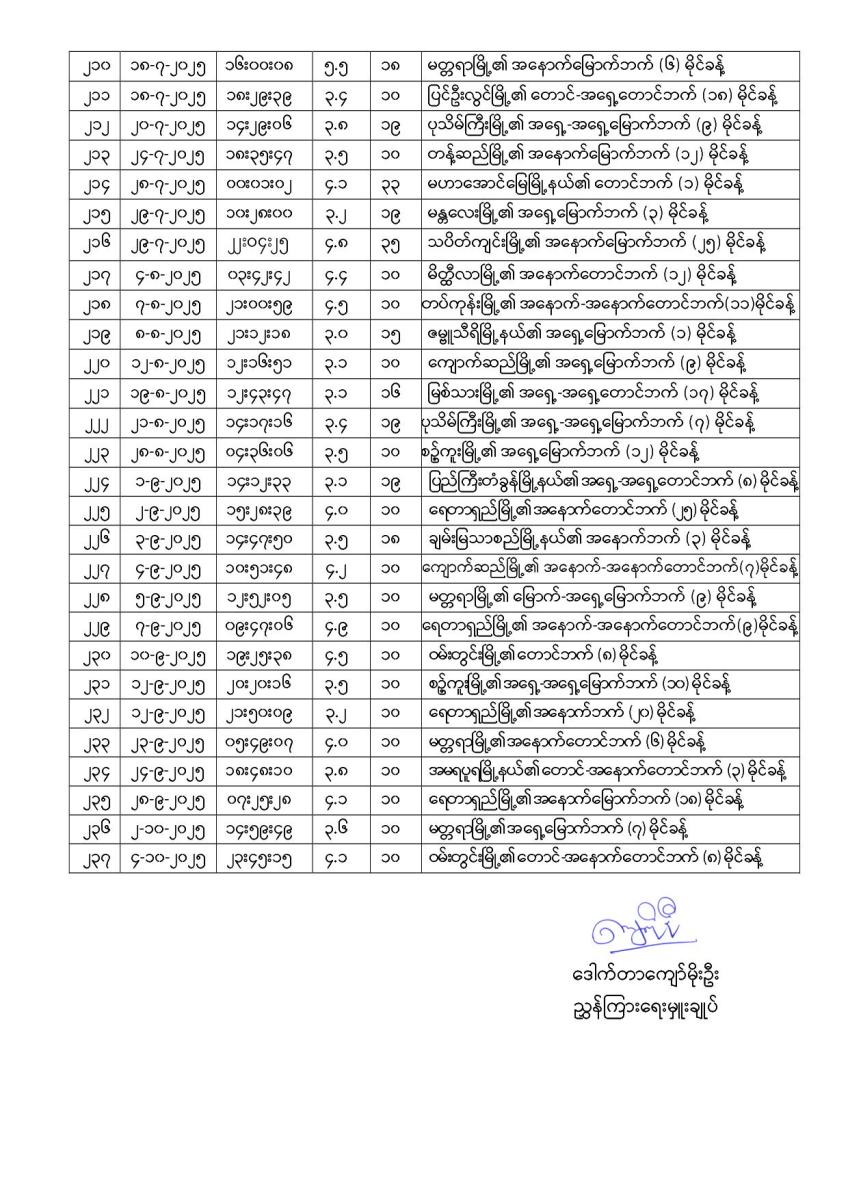 ၂၁၀ ၁၈-၇-၂၀၂၅ ၁၆း၀၀း၀၈ ၅.၅ ၁၈ မတ္တရာမြို့၏ အနောက်မြောက်ဘက် (၆) မိုင်ခန့်
၂၁၁ ၁၈-၇-၂၀၂၅ ၁၈း၂၉း၃၉ ၃.၄ ၁၀ ပြင်ဦးလွင်မြို့၏ တောင်-အရှေ့တောင်ဘက် (၁၈) မိုင်ခန့်
၂၁၂ ၂၀-၇-၂၀၂၅ ၁၄း၂၉း၀၆ ၃.၈ ၁၉ ပုသိမ်ကြီးမြို့၏ အရှေ့-အရှေ့မြောက်ဘက် (၉) မိုင်ခန့်
၂၁၃ ၂၄-၇-၂၀၂၅ ၁၈း၃၅း၄၇ ၃.၅ ၁၀ တန့်ဆည်မြို့၏ အနောက်မြောက်ဘက် (၁၂) မိုင်ခန့်
၂၁၄ ၂၈-၇-၂၀၂၅ ၀၀း၀၁း၀၂ ၄.၁ ၃၃ မဟာအောင်မြေမြို့နယ်၏ တောင်ဘက် (၁) မိုင်ခန့်
၂၁၅ ၂၉-၇-၂၀၂၅ ၁၀း၂၈း၀၀ ၃.၂ ၁၉ မန္တလေးမြို့၏ အရှေ့မြောက်ဘက် (၃) မိုင်ခန့်
၂၁၆ ၂၉-၇-၂၀၂၅ ၂၂း၀၄း၂၅ ၄.၈ ၃၅ သပိတ်ကျင်းမြို့၏ အနောက်မြောက်ဘက် (၂၅) မိုင်ခန့်
၂၁၇ ၄-၈-၂၀၂၅ ၀၃း၄၂း၄၂ ၄.၄ ၁၀ မိတ္ထီလာမြို့၏ အနောက်တောင်ဘက် (၁၂) မိုင်ခန့်
၂၁၈ ၇-၈-၂၀၂၅ ၂၁း၀၀း၅၉ ၄.၅ ၁၀ တပ်ကုန်းမြို့၏ အနောက်-အနောက်တောင်ဘက်(၁၁)မိုင်ခန့်
၂၁၉ ၈-၈-၂၀၂၅ ၂၁း၁၂း၁၈ ၃.၀ ၁၅ ဇမ္ဗူသီရိမြို့နယ်၏ အရှေ့မြောက်ဘက် (၁) မိုင်ခန့်
၂၂၀ ၁၂-၈-၂၀၂၅ ၁၂း၁၆း၅၁ ၃.၁ ၁၀ ကျောက်ဆည်မြို့၏ အရှေ့မြောက်ဘက် (၉) မိုင်ခန့်
၂၂၁ ၁၉-၈-၂၀၂၅ ၁၂း၄၃း၄၇ ၃.၁ ၁၆ မြစ်သားမြို့၏ အရှေ့-အရှေ့တောင်ဘက် (၁၇) မိုင်ခန့်
၂၂၂ ၂၁-၈-၂၀၂၅ ၁၄း၁၇း၁၆ ၃.၄ ၁၉ ပုသိမ်ကြီးမြို့၏ အရှေ့-အရှေ့မြောက်ဘက် (၇) မိုင်ခန့်
၂၂၃ ၂၈-၈-၂၀၂၅ ၀၄း၃၆း၀၆ ၃.၅ ၁၀ စဉ့်ကူးမြို့၏ အရှေ့မြောက်ဘက် (၁၂) မိုင်ခန့်
၂၂၄ ၁-၉-၂၀၂၅ ၁၄း၁၂း၃၃ ၃.၁ ၁၉ ပြည်ကြီးတံခွန်မြို့နယ်၏ အရှေ့-အရှေ့တောင်ဘက် (၈) မိုင်ခန့်
၂၂၅ ၂-၉-၂၀၂၅ ၁၅း၂၈း၃၉ ၄.၀ ၁၀ ရေတာရှည်မြို့၏ အနောက်တောင်ဘက် (၂၅) မိုင်ခန့်
၂၂၆ ၃-၉-၂၀၂၅ ၁၄း၄၇း၅၀ ၃.၅ ၁၈ ချမ်းမြသာစည်မြို့နယ်၏ အနောက်ဘက် (၃) မိုင်ခန့်
၂၂၇ ၄-၉-၂၀၂၅ ၁၀း၅၁း၄၈ ၄.၂ ၁၀ ကျောက်ဆည်မြို့၏ အနောက်-အနောက်တောင်ဘက်(၇)မိုင်ခန့်
၂၂၈ ၅-၉-၂၀၂၅ ၁၂း၅၂း၀၅ ၃.၅ ၁၀ မတ္တရာမြို့၏ မြောက်-အရှေ့မြောက်ဘက် (၉) မိုင်ခန့်
၂၂၉ ၇-၉-၂၀၂၅ ၀၉း၄၇း၀၆ ၄.၉ ၁၀ ရေတာရှည်မြို့၏ အနောက်-အနောက်တောင်ဘက်(၉)မိုင်ခန့်
၂၃၀ ၁၀-၉-၂၀၂၅ ၁၉း၂၅း၃၈ ၄.၅ ၁၀ ဝမ်းတွင်းမြို့၏ တောင်ဘက် (၈) မိုင်ခန့်
၂၃၁ ၁၂-၉-၂၀၂၅ ၂၀း၂၀း၁၆ ၃.၅ ၁၀ စဉ့်ကူးမြို့၏ အရှေ့-အရှေ့မြောက်ဘက် (၁၀) မိုင်ခန့်
၂၃၂ ၁၂-၉-၂၀၂၅ ၂၁း၅၀း၀၉ ၃.၂ ၁၀ ရေတာရှည်မြို့၏ အနောက်ဘက် (၂၀) မိုင်ခန့်
၂၃၃ ၂၃-၉-၂၀၂၅ ၀၅း၄၉း၀၇ ၄.၀ ၁၀ မတ္တရာမြို့၏ အနောက်တောင်ဘက် (၆) မိုင်ခန့်
၂၃၄ ၂၄-၉-၂၀၂၅ ၁၈း၄၈း၁၀ ၃.၈ ၁၀ အမရပူရမြို့နယ်၏ တောင်-အနောက်တောင်ဘက် (၃) မိုင်ခန့်
၂၃၅ ၂၈-၉-၂၀၂၅ ၀၇း၂၅း၂၈ ၄.၁ ၁၀ ရေတာရှည်မြို့၏ အနောက်မြောက်ဘက် (၁၈) မိုင်ခန့်
၂၃၆ ၂-၁၀-၂၀၂၅ ၁၄း၅၉း၄၉ ၃.၆ ၁၀ မတ္တရာမြို့၏ အရှေ့မြောက်ဘက် (၇) မိုင်ခန့်
၂၃၇ ၄-၁၀-၂၀၂၅ ၂၃း၄၅း၁၅ ၄.၁ ၁၀ ဝမ်းတွင်းမြို့၏ တောင်-အနောက်တောင်ဘက် (၈) မိုင်ခန့်
ဒေါက်တာကျော်မိုးဦး
ညွှန်ကြားရေးမှူးချုပ်